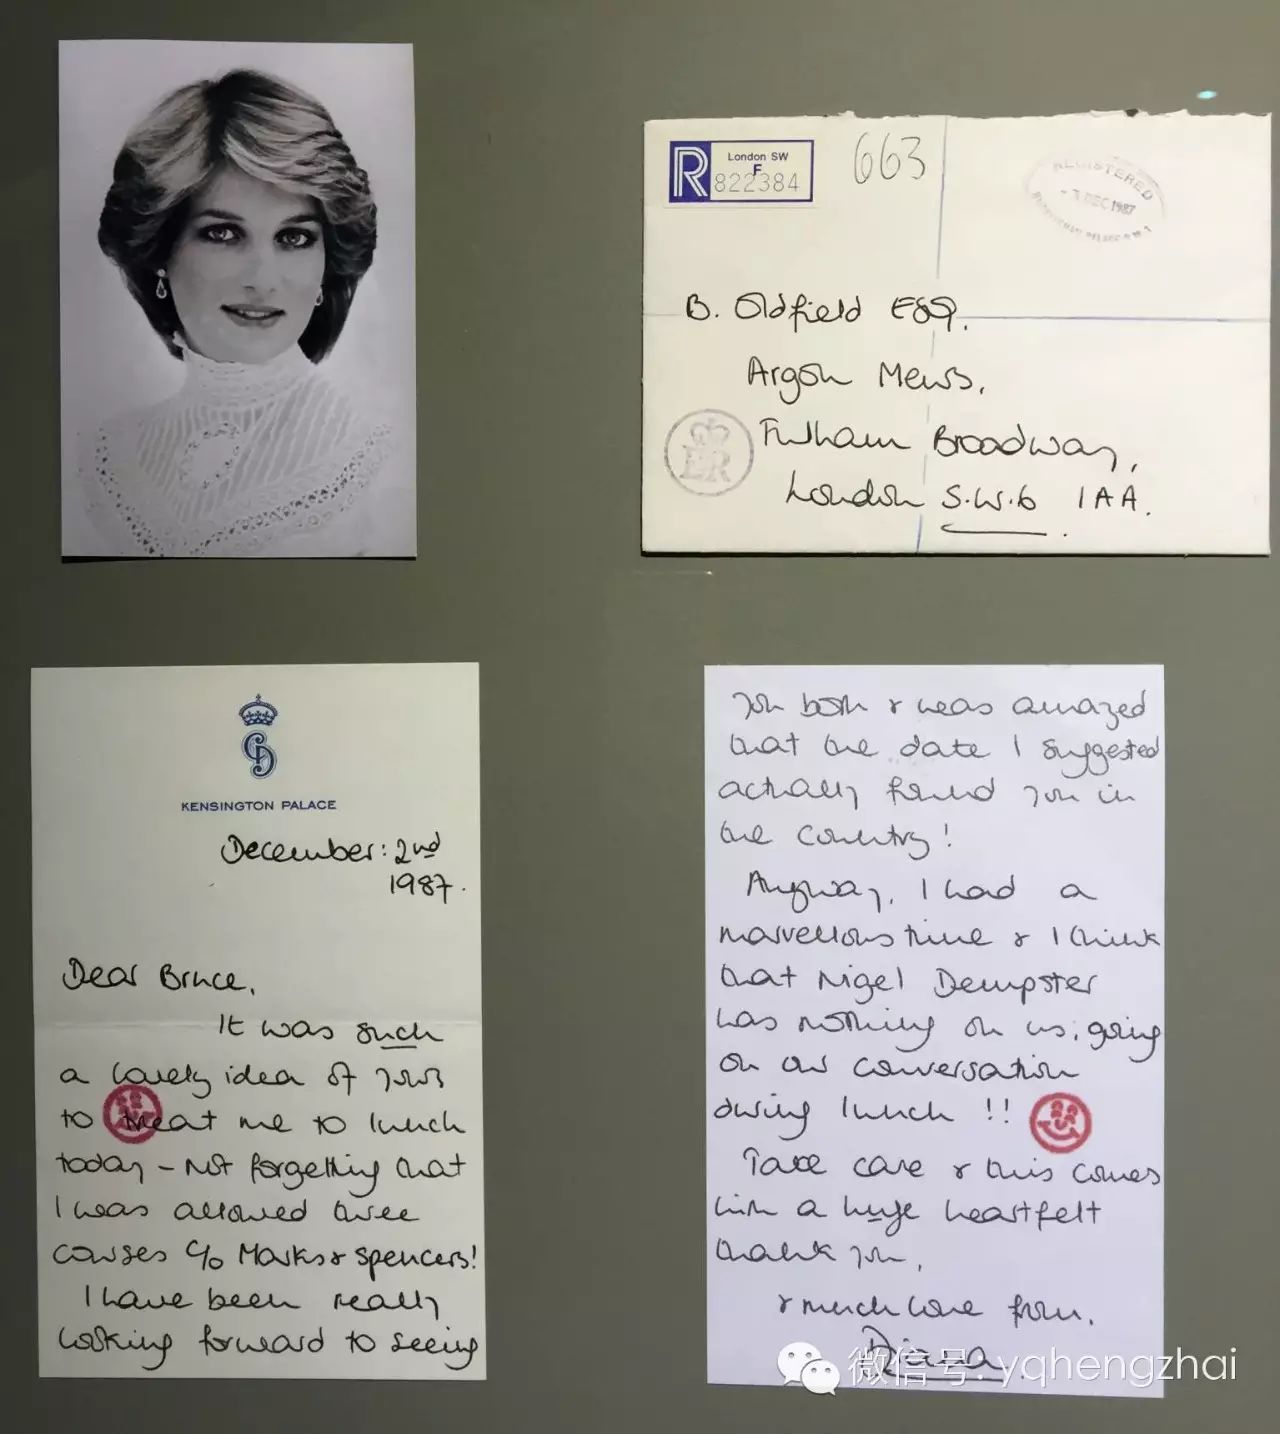 R
London SW
F
822384
663
REGISTERED
DEC 1987
B. Oldfield ESQ.
Argon Mews,
Fulham Broadway,
London S.W.6 1AA.
ER
CD
KENSINGTON PALACE
December: 2nd
1987.
Dear Bruce,
It was such
a lovely idea of yours
to treat me to lunch
today - not forgetting that
I was allowed three
courses c/o Marks & Spencers!
I have been really
looking forward to seeing
you both & was amazed
that the date I suggested
actually found you in
the country!
Anyway, I had a
marvellous time & I think
that Nigel Dempster
has nothing on us, going
on our conversation
during lunch !!
Take care & this comes
with a huge heartfelt
thank you,
& much love from.
Diana.
微信号: yqhengzhai